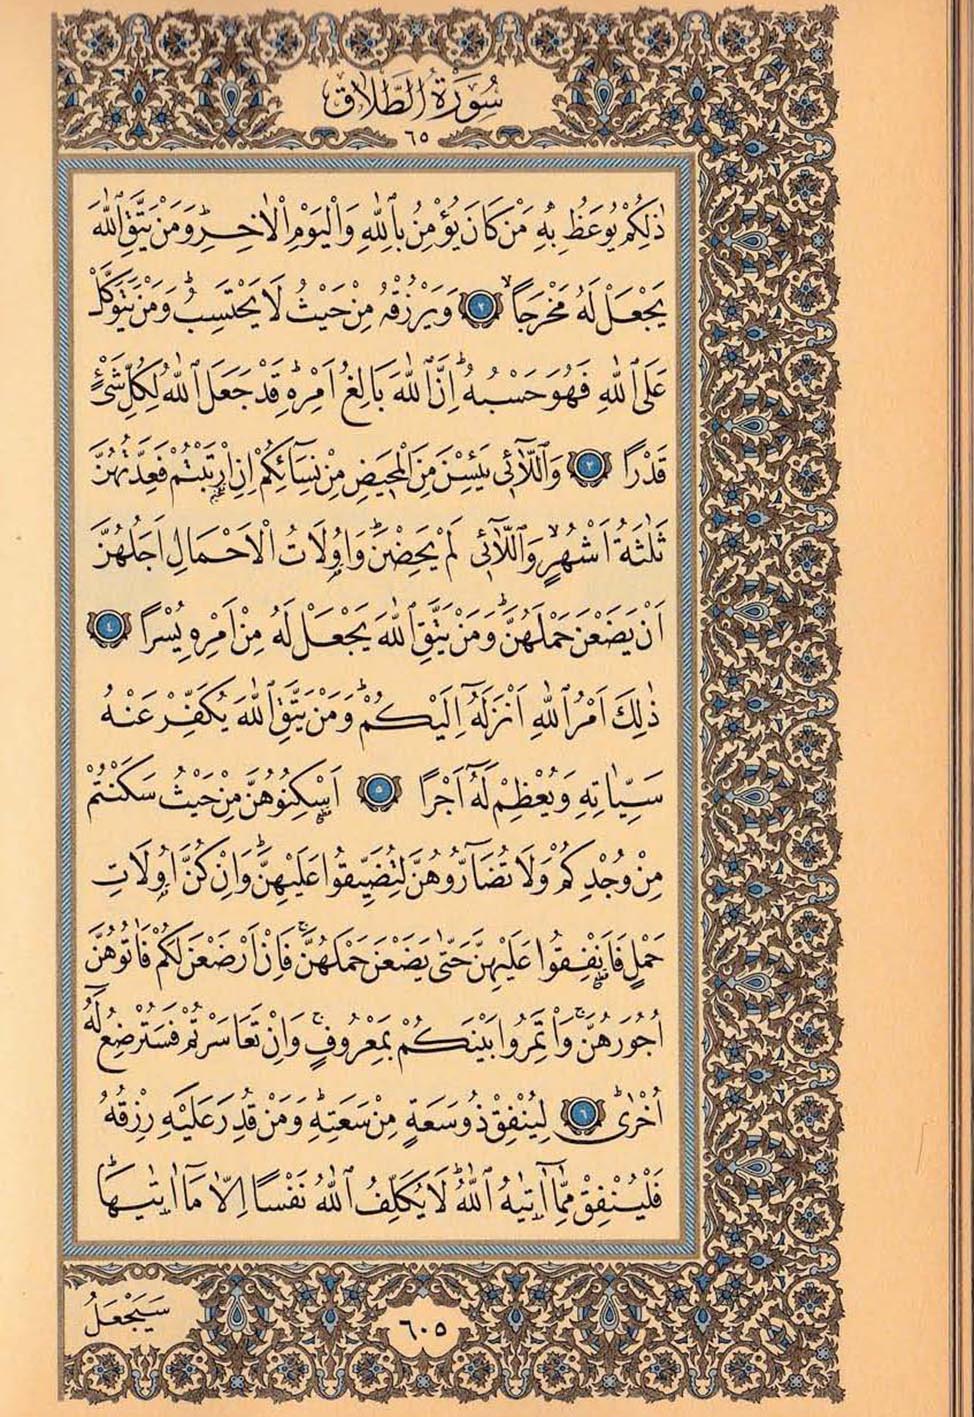 سُورَةُ الطَّلَاقِ
٦٥
ذٰلِكُمْ يُوعَظُ بِهِ مَنْ كَانَ يُؤْمِنُ بِاللّٰهِ وَالْيَوْمِ الْاٰخِرِۜ وَمَنْ يَتَّقِ اللّٰهَ
يَجْعَلْ لَهُ مَخْرَجًاۙ ﴿٢﴾ وَيَرْزُقْهُ مِنْ حَيْثُ لَا يَحْتَسِبُۜ وَمَنْ يَتَوَكَّلْ
عَلَى اللّٰهِ فَهُوَ حَسْبُهُۜ اِنَّ اللّٰهَ بَالِغُ اَمْرِهِۜ قَدْ جَعَلَ اللّٰهُ لِكُلِّ شَيْءٍ
قَدْرًا ﴿٣﴾ وَاللَّٓائِي يَئِسْنَ مِنَ الْمَحِيضِ مِنْ نِسَٓائِكُمْ اِنِ ارْتَبْتُمْ فَعِدَّتُهُنَّ
ثَلٰثَةُ اَشْهُرٍۙ وَاللَّٓائِي لَمْ يَحِضْنَۜ وَاُو۬لَاتُ الْاَحْمَالِ اَجَلُهُنَّ
اَنْ يَضَعْنَ حَمْلَهُنَّۜ وَمَنْ يَتَّقِ اللّٰهَ يَجْعَلْ لَهُ مِنْ اَمْرِهِ يُسْرًا ﴿٤﴾
ذٰلِكَ اَمْرُ اللّٰهِ اَنْزَلَهُٓ اِلَيْكُمْۜ وَمَنْ يَتَّقِ اللّٰهَ يُكَفِّرْ عَنْهُ
سَيِّـَٔاتِهِ وَيُعْظِمْ لَهُٓ اَجْرًا ﴿٥﴾ اَسْكِنُوهُنَّ مِنْ حَيْثُ سَكَنْتُمْ
مِنْ وُجْدِكُمْ وَلَا تُضَٓارُّوهُنَّ لِتُضَيِّقُوا عَلَيْهِنَّۜ وَاِنْ كُنَّ اُو۬لَاتِ
حَمْلٍ فَاَنْفِقُوا عَلَيْهِنَّ حَتّٰى يَضَعْنَ حَمْلَهُنَّۚ فَاِنْ اَرْضَعْنَ لَكُمْ فَاٰتُوهُنَّ
اُجُورَهُنَّۚ وَأْتَمِرُوا بَيْنَكُمْ بِمَعْرُوفٍۚ وَاِنْ تَعَاسَرْتُمْ فَسَتُرْضِعُ لَهُٓ
اُخْرٰىۜ ﴿٦﴾ لِيُنْفِقْ ذُو سَعَةٍ مِنْ سَعَتِهِۜ وَمَنْ قُدِرَ عَلَيْهِ رِزْقُهُ
فَلْيُنْفِقْ مِمَّٓا اٰتٰيهُ اللّٰهُۜ لَا يُكَلِّفُ اللّٰهُ نَفْسًا اِلَّا مَٓا اٰتٰيهَاۜ
سَيَجْعَلُ
٦٠٥